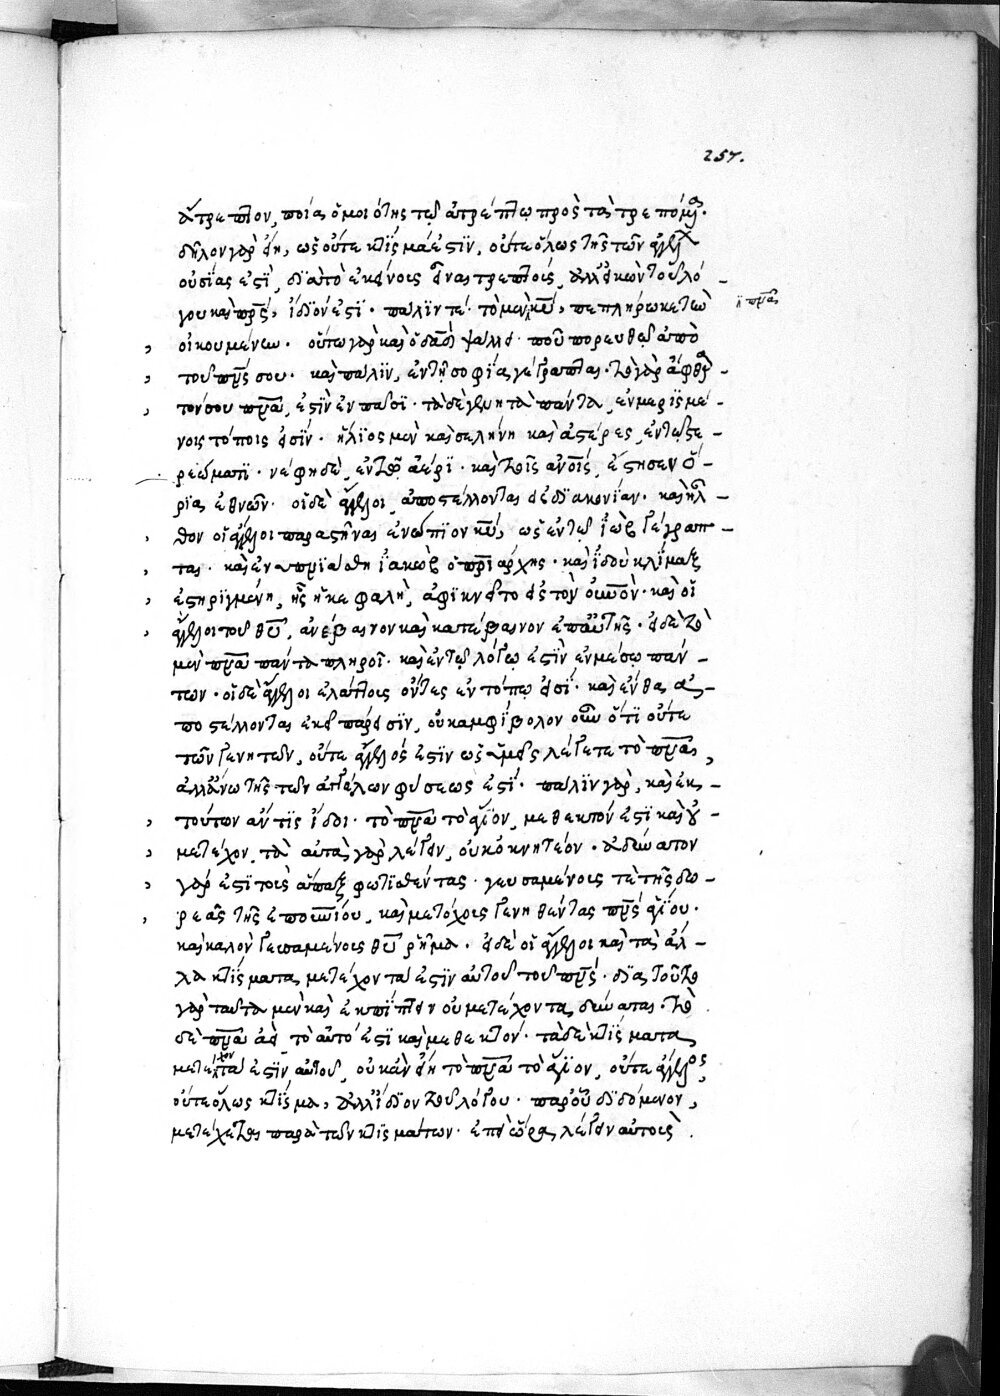 257.
ἄτρεπτον, ποία ὁμοιότης τῷ ἀτρέπτῳ πρὸς τὰ τρεπόμενα·
δῆλον γὰρ εἴη, ὡς οὔτε κτίσμα ἐστὶν, οὔτε ὅλως τῆς τῶν ἀγγέλων
οὐσίας ἐστὶ, διὰ τὸ ἐκείνους εἶναι τρεπτοὺς, ἀλλὰ τοῦ λό-
γου καὶ πρς, ἴδιόν ἐστι· πάλιν τε· τὸ μὲν κυ, πεπλήρωκε τὴν
ἢ πνα
οἰκουμένην· οὕτω γὰρ καὶ ὁ δαδ ψάλλει· ποῦ πορευθῶ ἀπὸ
τοῦ πνς σου· καὶ πάλιν, ἐν τῇ σοφίᾳ γέγραπται· τὸ γὰρ ἄφθαρ-
τόν σου πνα, ἐστὶν ἐν πᾶσι· τὰ δὲ γενητὰ πάντα, ἐν μεμερισμέ-
νοις τόποις εἰσίν· ἥλιος μὲν καὶ σελήνη καὶ ἀστέρες, ἐν τῷ στε-
ρεώματι· νέφη δὲ, ἐν τῷ ἀέρι· καὶ τοῖς ἀνοις, ἔστησεν ὅ-
ρια ἐθνῶν· οἱ δὲ ἄγγελοι, ἀποστέλλονται εἰς διακονίαν· καὶ ἦλ-
θον οἱ ἄγγελοι παραστῆναι ἐνώπιον κυ, ὡς ἐν τῷ ἰὼβ γέγραπ-
ται· καὶ ἐνυπνιάσθη ἰακὼβ ὁ πριάρχης· καὶ ἰδοὺ κλίμαξ
ἐστηριγμένη, ἧς ἡ κεφαλὴ, ἀφικνεῖτο εἰς τὸν ουνον· καὶ οἱ
ἄγγελοι τοῦ θυ, ἀνέβαινον καὶ κατέβαινον ἐπ' αὐτῆς· εἰ δὲ τὸ
μὲν πνα πάντα πληροῖ· καὶ ἐν τῷ λόγῳ ἐστὶν ἐν μέσῳ πάν-
των· οἱ δὲ ἄγγελοι ἐλάττους ὄντες ἐν τόπῳ εἰσί· καὶ ἔνθα ἀ-
ποστέλλονται ἐκεῖ πάρεισιν, οὐκ ἀμφίβολον οὖν ὅτι οὔτε
τῶν γενητῶν, οὔτε ἄγγελός ἐστιν ὡς ὑμεῖς λέγετε τὸ πνα,
ἀλλ' ἄνω τῆς τῶν ἀγγέλων φύσεώς ἐστί· πάλιν γὰρ, καὶ ἐκ
τούτων ἄν τις ἴδοι· τὸ πνα τὸ ἅγιον, μεθεκτόν ἐστι καὶ οὐ
μετέχον, τὰ αὐτὰ γὰρ λέγειν, οὐκ ὀκνητέον· ἀδύνατον
γάρ ἐστι τοὺς ἅπαξ φωτισθέντας· γευσαμένους τε τῆς δω-
ρεᾶς τῆς ἐπουνίου, καὶ μετόχους γενηθέντας πνς ἁγίου·
καὶ καλὸν γευσαμένους θυ ῥῆμα· εἰ δὲ οἱ ἄγγελοι καὶ τὰ ἀλ-
λα κτίσματα, μετέχοντά ἐστιν αὐτοῦ τοῦ πνς· διὰ τοῦτο
γὰρ ταῦτα μὲν καὶ ἐκπίπτειν οὐ μετέχοντα δύναται· τὸ
δὲ πνα ἀεὶ τὸ αὐτό ἐστι καὶ μεθεκτόν· τὰ δὲ κτίσματα,
μετέχοντά ἐστιν αὐτοῦ, οὐκ ἂν εἴη τὸ πνα τὸ ἅγιον, οὔτε ἄγγελος,
οὔτε ὅλως κτίσμα, ἀλλ' ἴδιον τοῦ λόγου· παρ' οὗ διδόμενον,
μετέχεται παρὰ τῶν κτισμάτων· ἐπεὶ ὥρα, λέγειν αὐτοὺς